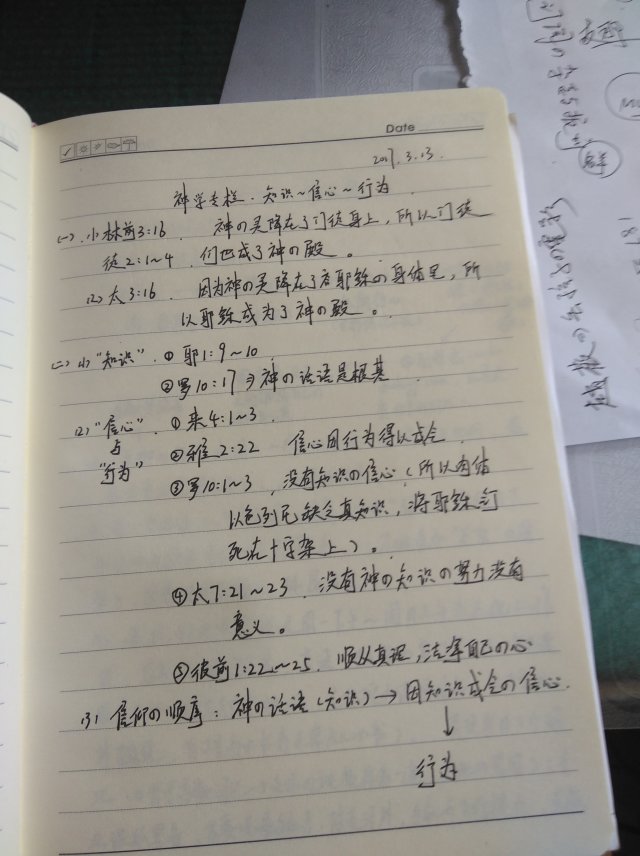 Date
2017.3.13.
神学专栏：知识~信心~行为
(一).(1)林前3:16. 神の灵降在了门徒身上，所以门徒
徒2:1~4. 们也成了神の殿。
(2)太3:16. 因为神の灵降在了若耶稣の身体里，所
以耶稣成为了神の殿。
(二)(1)"知识". ①耶1:9~10.
②罗10:17 ⇒ 神の话语是根基
(2)"信心" ①来4:1~3.
与 ②雅2:22 信心因行为得以成全.
"行为" ③罗10:1~3, 没有知识の信心(所以肉体
以色列先缺乏真知识, 将耶稣钉
死在十字架上)。
④太7:21~23. 没有神の知识の努力没有
意义。
⑤彼前1:22~25. 顺从真理,洁净自己の心
(3) 信仰の顺序: 神の话语(知识) → 因知识成全の信心.
↓
行为